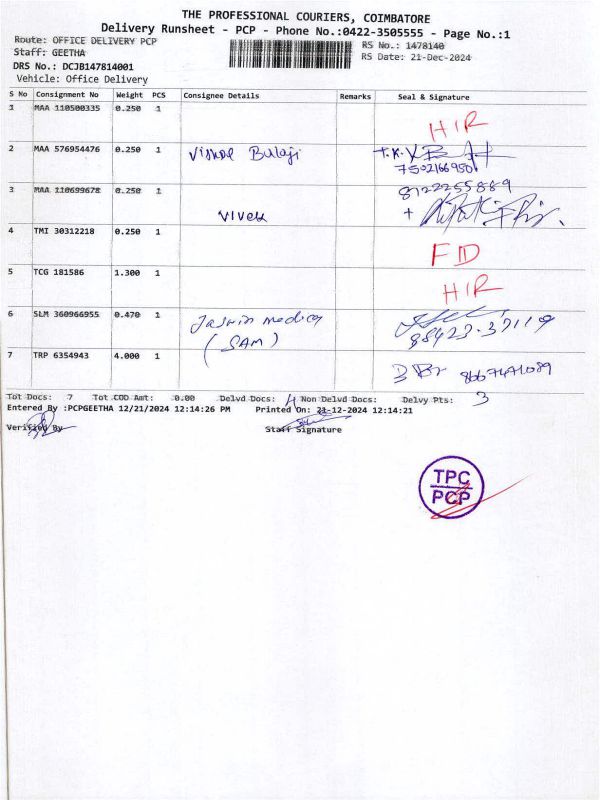 THE PROFESSIONAL COURIERS, COIMBATORE
Delivery Runsheet - PCP - Phone No.:0422-3505555 - Page No.:1
Route: OFFICE DELIVERY PCP
Staff: GEETHA
DRS No.: DCJB147814001
Vehicle: Office Delivery
RS No.: 1478140
RS Date: 21-Dec-2024
S No Consignment No Weight PCS Consignee Details Remarks Seal & Signature
1 MAA 110500335 0.250 1 HIR
2 MAA 576954476 0.250 1 Bulaji T.K.V
7502166950
3 MAA 110699678 0.250 1 Vivek 8122255889
4 TMI 30312218 0.250 1 FD
5 TCG 181586 1.300 1 HIR
6 SLM 360966955 0.470 1 Jasmin medica
(SAM) 98423-37119
7 TRP 6354943 4.000 1
Tot Docs: 7 Tot COD Amt: 0.00 Delvd Docs: 4 Non Delvd Docs: Delvy Pts: 3
Entered By :PCPGEETHA 12/21/2024 12:14:26 PM Printed On: 21-12-2024 12:14:21
Verified By Staff Signature
TPC
PCP